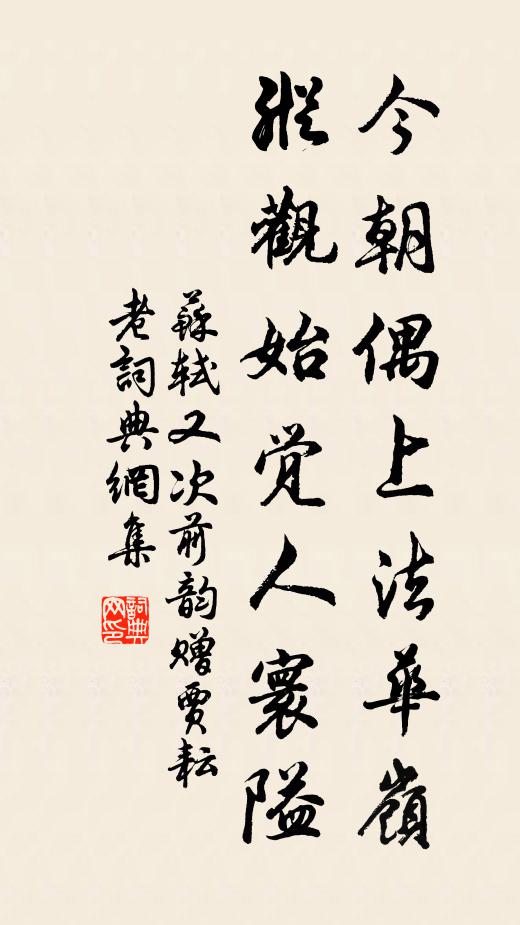 今朝偶上法華嶺
縱觀始觉人寰隘
蘇轼又次前韵赠賈耘
老詞典網集
詞典
网印